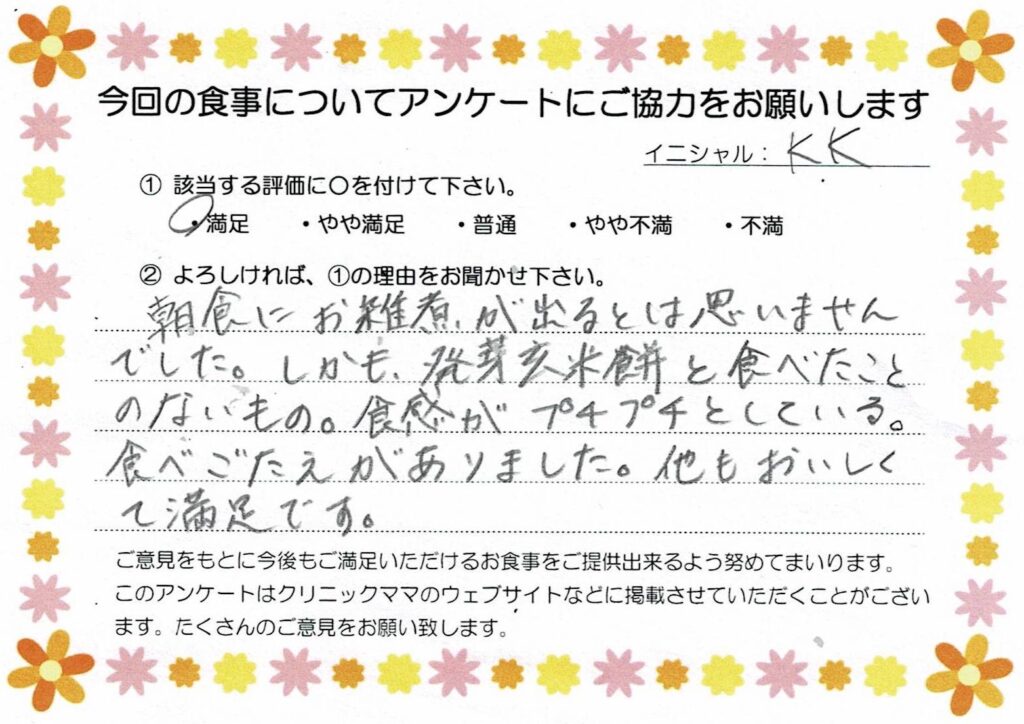 今回の食事についてアンケートにご協力をお願いします
イニシャル： KK
① 該当する評価に〇を付けて下さい。
・満足 ・やや満足 ・普通 ・やや不満 ・不満
② よろしければ、①の理由をお聞かせ下さい。
朝食にお雑煮が出るとは思いません
でした。しかも、発芽玄米餅と食べたこと
のないもの。食感がプチプチとしている。
食べごたえがありました。他もおいしく
て満足です。
ご意見をもとに今後もご満足いただけるお食事をご提供出来るよう努めてまいります。
このアンケートはクリニックママのウェブサイトなどに掲載させていただくことがござい
ます。たくさんのご意見をお願い致します。